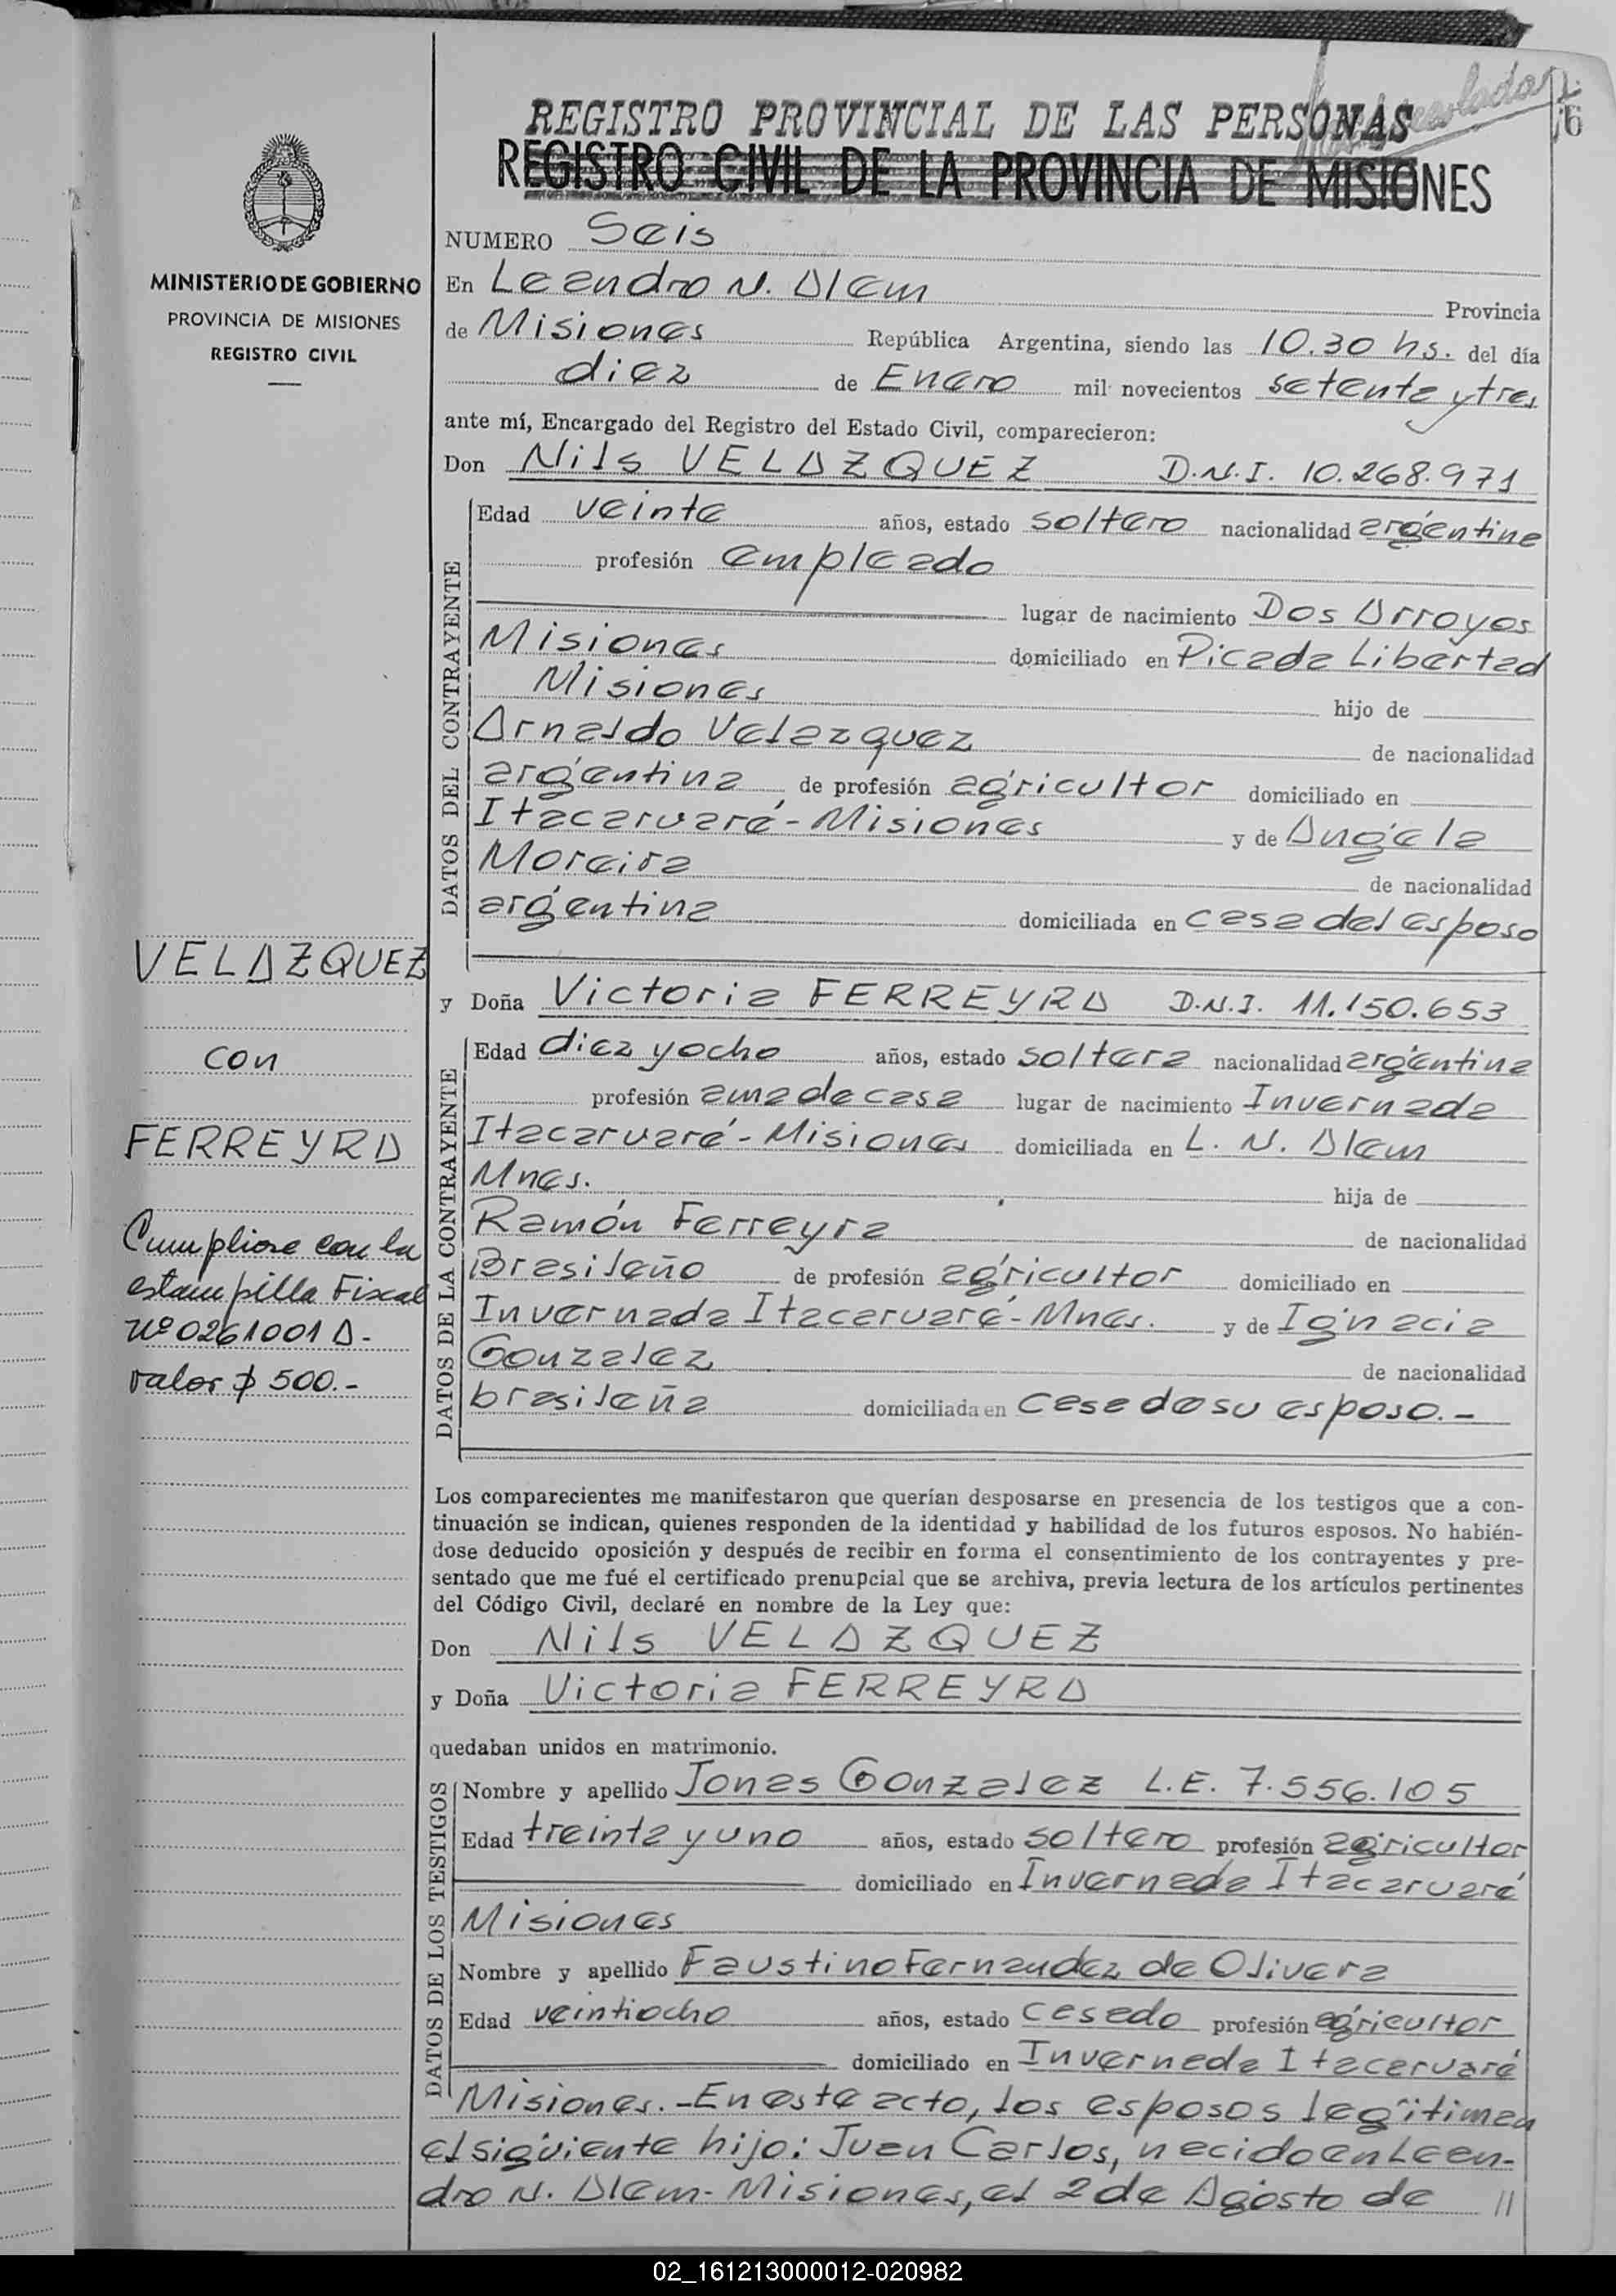 trasladado
6
REGISTRO PROVINCIAL DE LAS PERSONAS
REGISTRO CIVIL DE LA PROVINCIA DE MISIONES
MINISTERIO DE GOBIERNO
PROVINCIA DE MISIONES
REGISTRO CIVIL
NUMERO Seis
En Leandro N. Alem Provincia
de Misiones República Argentina, siendo las 10.30 hs. del día
diez de Enero mil novecientos setenta y tres
ante mí, Encargado del Registro del Estado Civil, comparecieron:
Don Nils VELAZQUEZ D.N.I. 10.268.971
DATOS DEL CONTRAYENTE
Edad veinte años, estado soltero nacionalidad argentina
profesión empleado
lugar de nacimiento Dos Arroyos
Misiones domiciliado en Picada Libertad
Misiones hijo de
Arnaldo Velazquez de nacionalidad
argentina de profesión agricultor domiciliado en
Itacaruaré-Misiones y de Angela
Moreira de nacionalidad
argentina domiciliada en casa del esposo
VELAZQUEZ
con
FERREYRA
Cumpliose con la
estampilla Fiscal
Nº 0261001 A-
valor $ 500.-
y Doña Victoria FERREYRA D.N.I. 11.150.653
DATOS DE LA CONTRAYENTE
Edad diez y ocho años, estado soltera nacionalidad argentina
profesión ama de casa lugar de nacimiento Invernada
Itacaruaré-Misiones domiciliada en L. N. Alem
Mnes. hija de
Ramón Ferreyra de nacionalidad
Brasileño de profesión agricultor domiciliado en
Invernada Itacaruaré-Mnes. y de Ignacia
Gonzalez de nacionalidad
brasileña domiciliada en casa de su esposo.-
Los comparecientes me manifestaron que querían desposarse en presencia de los testigos que a con-
tinuación se indican, quienes responden de la identidad y habilidad de los futuros esposos. No habién-
dose deducido oposición y después de recibir en forma el consentimiento de los contrayentes y pre-
sentado que me fué el certificado prenupcial que se archiva, previa lectura de los artículos pertinentes
del Código Civil, declaré en nombre de la Ley que:
Don Nils VELAZQUEZ
y Doña Victoria FERREYRA
quedaban unidos en matrimonio.
DATOS DE LOS TESTIGOS
Nombre y apellido Jonas Gonzalez L.E. 7.556.105
Edad treinta y uno años, estado soltero profesión agricultor
domiciliado en Invernada Itacaruaré
Misiones
Nombre y apellido Faustino Fernandez de Olivera
Edad veintiocho años, estado casado profesión agricultor
domiciliado en Invernada Itacaruaré
Misiones.-En este acto, los esposos legitiman
el siguiente hijo: Juan Carlos, nacido en Lean-
dro N. Alem-Misiones, el 2 de Agosto de //
02_161213000012-020982